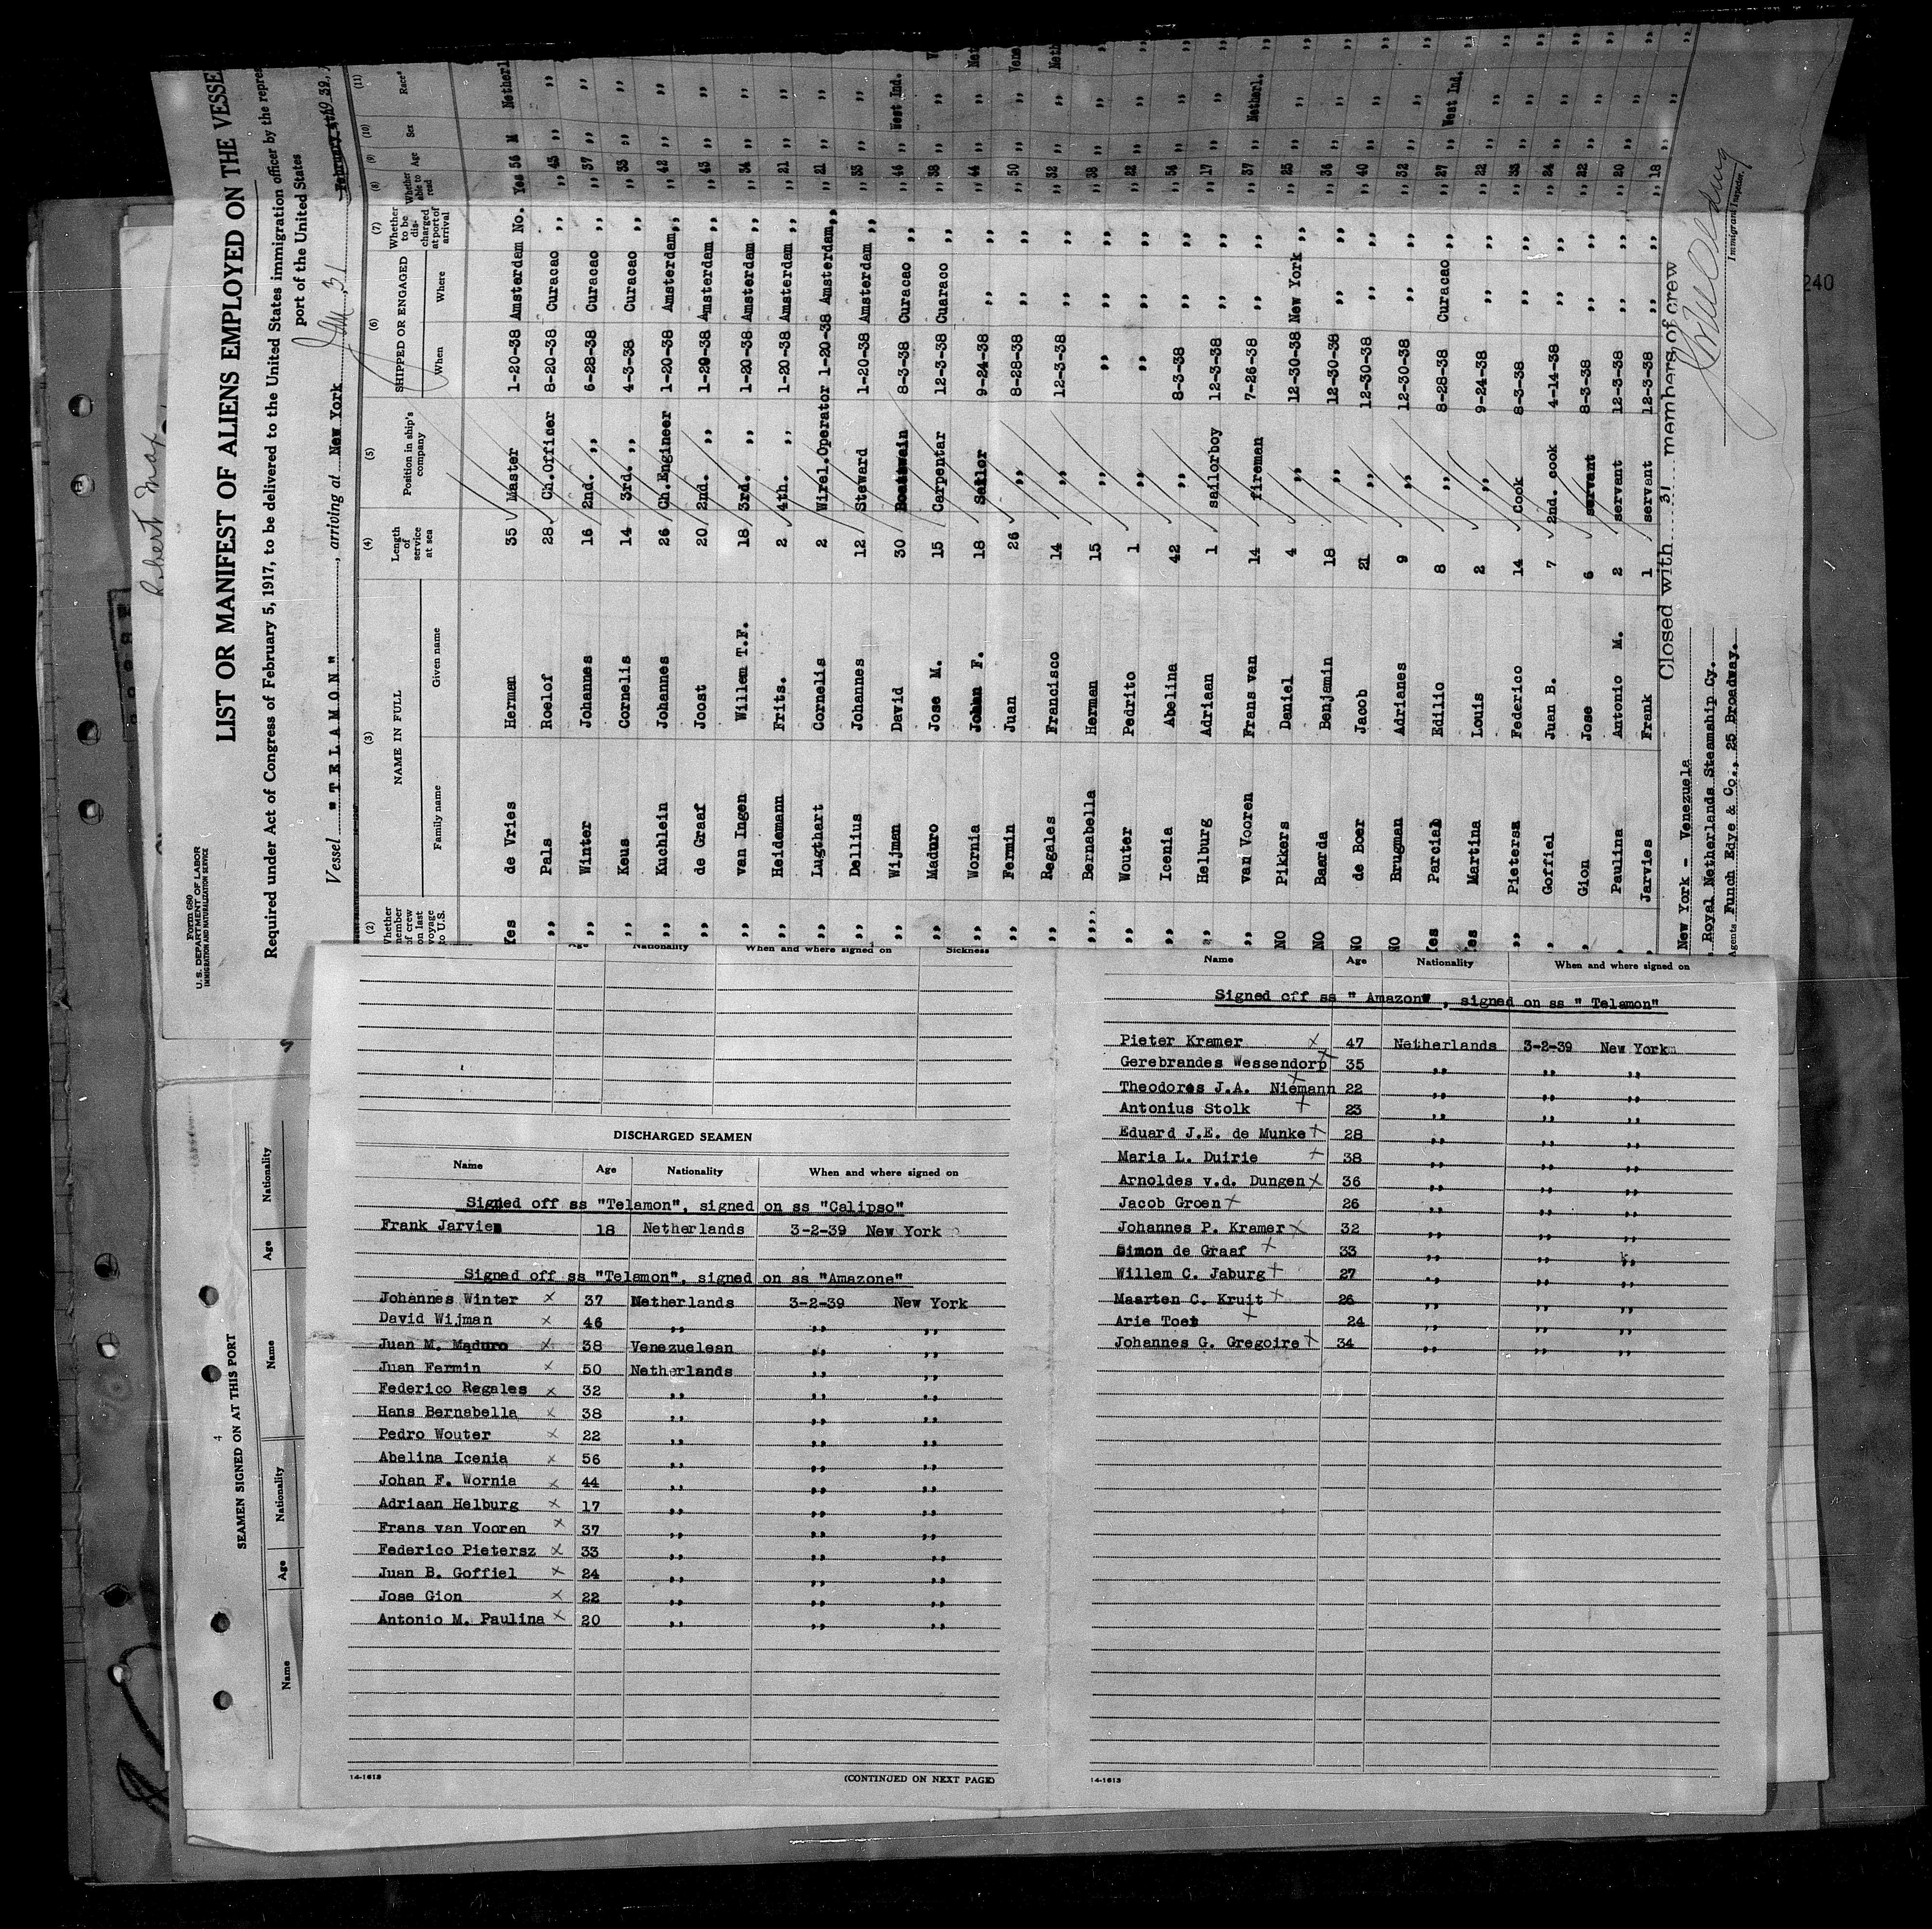 Form 680
U. S. DEPARTMENT OF LABOR
IMMIGRATION AND NATURALIZATION SERVICE
LIST OR MANIFEST OF ALIENS EMPLOYED ON THE VESSE
Required under Act of Congress of February 5, 1917, to be delivered to the United States immigration officer by the repre
port of the United States
Vessel "TELAMON", arriving at New York Jan 31 1939
(2) (3) (4) (5) (6) (7) (8) (9) (10) (11)
Whether member of crew on last voyage to U.S. NAME IN FULL Family name Given name Length of service at sea Position in ship's company SHIPPED OR ENGAGED When Where Whether to be discharged at port of arrival Whether able to read Age Sex Race*
Yes de Vries Herman 35 Master 1-20-38 Amsterdam No. Yes 56 M Netherl
,, Pals Roelof 28 Ch.Officer 8-20-38 Curacao ,, ,, 43 ,, ,,
,, Winter Johannes 16 2nd. ,, 6-28-38 Curacao ,, ,, 37 ,, ,,
,, Keus Cornelis 14 3rd. ,, 4-3-38 Curacao ,, ,, 33 ,, ,,
,, Kuchlein Johannes 26 Ch.Engineer 1-20-38 Amsterdam ,, ,, 42 ,, ,,
,, de Graaf Joost 20 2nd. ,, 1-20-38 Amsterdam ,, ,, 43 ,, ,,
,, van Ingen Willem T.F. 18 3rd. ,, 1-20-38 Amsterdam ,, ,, 34 ,, ,,
,, Heidemann Frits. 2 4th. ,, 1-20-38 Amsterdam ,, ,, 21 ,, ,,
,, Lugthart Cornelis 2 Wirel.Operator 1-20-38 Amsterdam ,, ,, 21 ,, ,,
,, Dellius Johannes 12 Steward 1-20-38 Amsterdam ,, ,, 33 ,, ,,
,, Wijman David 30 Boatswain 8-3-38 Curacao ,, ,, 46 ,, West Ind.
,, Maduro Jose M. 15 Carpentar 12-3-38 Cuaraco ,, ,, 38 ,, ,,
,, Wornia Johan F. 18 Sailor 9-24-38 ,, ,, ,, 44 ,, ,,
,, Fermin Juan 26 ,, 8-28-38 ,, ,, ,, 50 ,, ,,
,, Regales Francisco 14 ,, 12-3-38 ,, ,, ,, 32 ,, ,,
,,,, Bernabella Herman 15 ,, ,, ,, ,, ,, 38 ,, ,,
,, Wouter Pedrito 1 ,, ,, ,, ,, ,, 22 ,, ,,
,, Icenia Abelina 42 ,, 8-3-38 ,, ,, ,, 56 ,, ,,
,, Helburg Adriaan 1 sailorboy 12-3-38 ,, ,, ,, 17 ,, ,,
,, van Vooren Frans van 14 fireman 7-26-38 ,, ,, ,, 37 ,, Netherl.
NO Pikkers Daniel 4 ,, 12-30-38 New York ,, ,, 25 ,, ,,
NO Baarda Benjamin 18 ,, 12-30-38 ,, ,, ,, 36 ,, ,,
NO de Boer Jacob 21 ,, 12-30-38 ,, ,, ,, 40 ,, ,,
NO Brugman Adrianes 9 ,, 12-30-38 ,, ,, ,, 32 ,, ,,
Yes Parcial Edilio 8 ,, 8-28-38 Curacao ,, ,, 27 ,, West Ind.
Yes Martina Louis 2 ,, 9-24-38 ,, ,, ,, 22 ,, ,,
,, Pietersz Federico 14 Cook 8-3-38 ,, ,, ,, 33 ,, ,,
, Goffiel Juan B. 7 2nd. cook 4-14-38 ,, ,, ,, 24 ,, ,,
, Gion Jose 6 servant 8-3-38 ,, ,, ,, 22 ,, ,,
, Paulina Antonio M. 2 servant 12-3-38 ,, ,, ,, 20 ,, ,,
, Jarvies Frank 1 servant 12-3-38 ,, ,, ,, 18 ,, ,,
Closed with 31 members of crew
New York - Venezuela
Royal Netherlands Steamship Cy.
Agents Funch Edye & Co., 25 Broadway.
Immigrant Inspector.
240
Robert
Age Nationality When and where signed on Sickness
DISCHARGED SEAMEN
Name Age Nationality When and where signed on
Signed off ss "Telamon", signed on ss "Calipso"
Frank Jarvies 18 Netherlands 3-2-39 New York
Signed off ss "Telamon", signed on ss "Amazone"
Johannes Winter x 37 Netherlands 3-2-39 New York
David Wijman x 46 ,, ,, ,,
Juan M. Maduro x 38 Venezuelean ,, ,,
Juan Fermin x 50 Netherlands ,, ,,
Federico Regales x 32 ,, ,, ,,
Hans Bernabella x 38 ,, ,, ,,
Pedro Wouter x 22 ,, ,, ,,
Abelina Icenia x 56 ,, ,, ,,
Johan F. Wornia x 44 ,, ,, ,,
Adriaan Helburg x 17 ,, ,, ,,
Frans van Vooren x 37 ,, ,, ,,
Federico Pietersz x 33 ,, ,, ,,
Juan B. Goffiel x 24 ,, ,, ,,
Jose Gion x 22 ,, ,, ,,
Antonio M. Paulina x 20 ,, ,, ,,
14-1613 (CONTINUED ON NEXT PAGE)
Name Age Nationality When and where signed on
Signed off ss " Amazone", signed on ss " Telamon"
Pieter Kramer x 47 Netherlands 3-2-39 New York
Gerebrandes Wessendorp x 35 ,, ,, ,,
Theodores J.A. Niemann x 22 ,, ,, ,,
Antonius Stolk x 23 ,, ,, ,,
Eduard J.E. de Munke x 28 ,, ,, ,,
Maria L. Duirie x 38 ,, ,, ,,
Arnoldes v.d. Dungen x 36 ,, ,, ,,
Jacob Groen x 26 ,, ,, ,,
Johannes P. Kramer x 32 ,, ,, ,,
Simon de Graaf x 33 ,, ,, ,,
Willem C. Jaburg x 27 ,, ,, ,,
Maarten C. Kruit x 26 ,, ,, ,,
Arie Toet x 24 ,, ,, ,,
Johannes G. Gregoire x 34 ,, ,, ,,
14-1613
4
SEAMEN SIGNED ON AT THIS PORT
Name Age Nationality Name Age Nationality